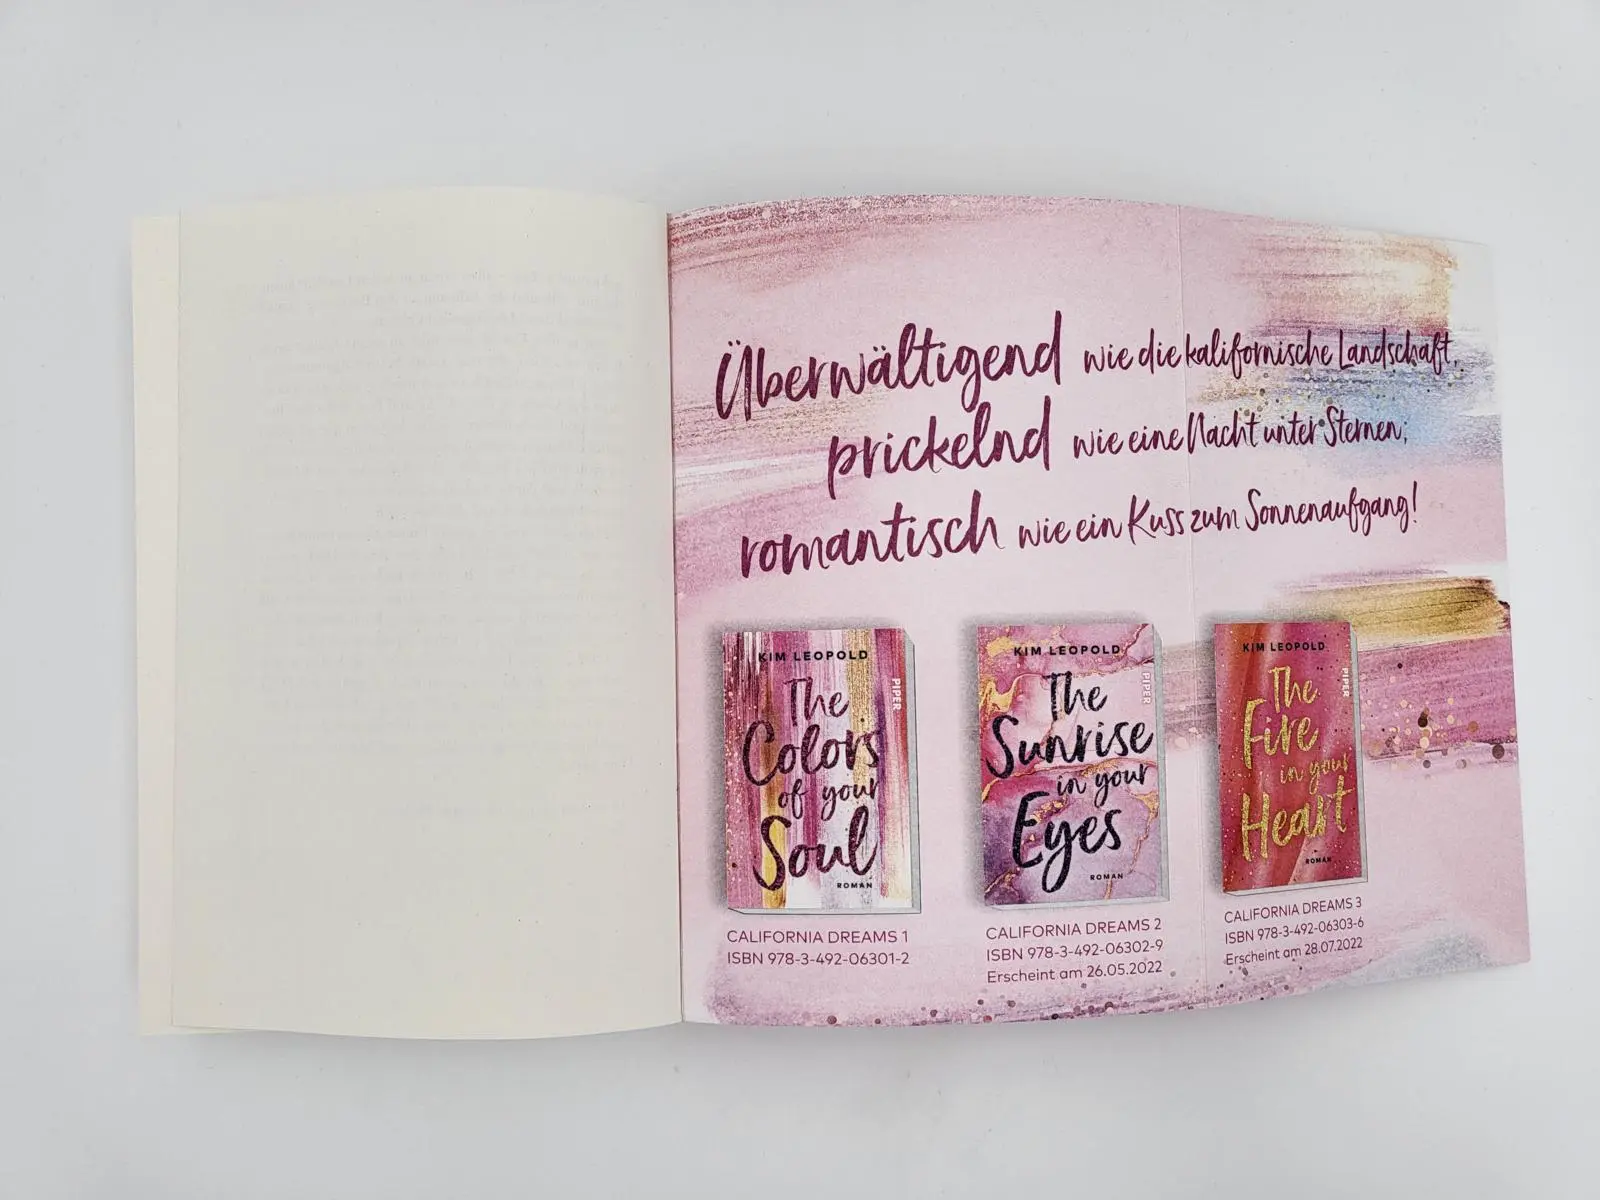 Überwältigend wie die kalifornische Landschaft,
prickelnd wie eine Nacht unter Sternen,
romantisch wie ein Kuss zum Sonnenaufgang!
KIM LEOPOLD
PIPER
The
Colors
of your
Soul
ROMAN
CALIFORNIA DREAMS 1
ISBN 978-3-492-06301-2
KIM LEOPOLD
PIPER
The
Sunrise
in your
Eyes
ROMAN
CALIFORNIA DREAMS 2
ISBN 978-3-492-06302-9
Erscheint am 26.05.2022
KIM LEOPOLD
PIPER
The
Fire
in your
Heart
ROMAN
CALIFORNIA DREAMS 3
ISBN 978-3-492-06303-6
Erscheint am 28.07.2022